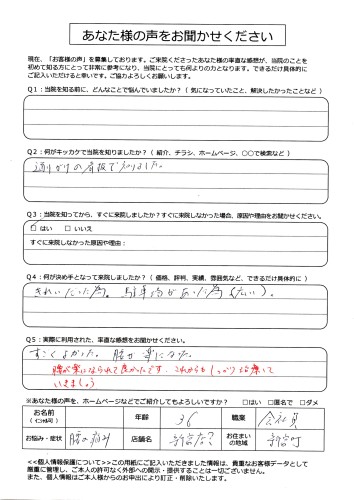 あなた様の声をお聞かせください
現在、「お客様の声」を募集しております。ご来院くださったあなた様の率直な感想が、当院のことを
初めて知る方にとって非常に参考になり、当院にとっても何よりの力となります。できるだけ具体的に
ご記入いただけると幸いです。ご協力よろしくお願いします。
Q1：当院を知る前に、どんなことで悩んでいましたか？（気になっていたこと、解決したかったことなど）
Q2：何がキッカケで当院を知りましたか？（紹介、チラシ、ホームページ、〇〇で検索など）
通りがかりの看板で知りました。
Q3：当院を知ってから、すぐに来院しましたか？すぐに来院しなかった場合、原因や理由をお聞かせください。
☑はい　□いいえ
すぐに来院しなかった原因や理由：
Q4：何が決め手となって来院しましたか？（価格、評判、実績、雰囲気など、できるだけ具体的に）
きれいだった為。駐車場があいた為（広い）。
Q5：実際に利用された、率直な感想をお聞かせください。
すごくよかった。腰が楽になった。
腰が楽になられて良かったです。これからもしっかり治療して
いきましょう
※あなた様の声を、ホームページなどでご紹介してもよろしいですか？　□はい　□匿名で　□ダメ
お名前　年齢　36　職業　会社員
（イニシャル可）
お悩み・症状　腰の痛み　店舗名　お住まい
の地域
<<個人情報保護について>>この用紙にご記入いただきました情報は、貴重なお客様データとして
厳重に管理し、ご本人の許可なく外部への開示・提供することは一切ございません。
また、個人情報はご本人様からのお申出により訂正・削除いたします。